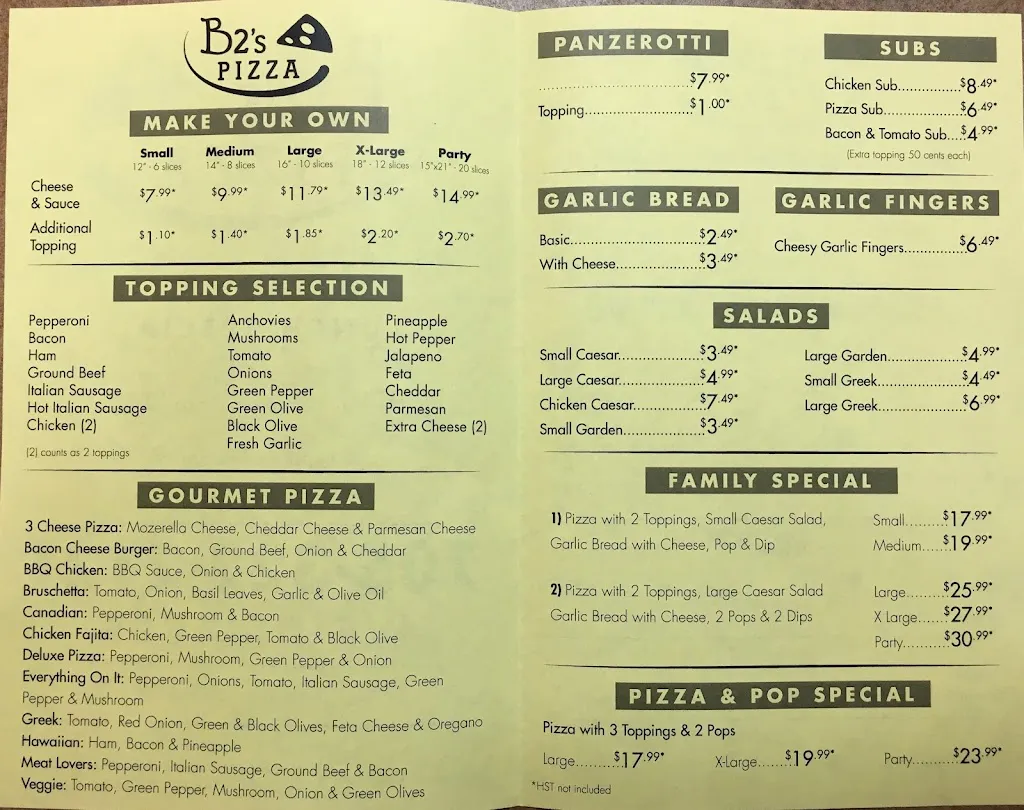 B2's
PIZZA
MAKE YOUR OWN
Small Medium Large X-Large Party
12" - 6 slices 14" - 8 slices 16" - 10 slices 18" - 12 slices 15"x21" - 20 slices
Cheese
& Sauce $7.99* $9.99* $11.79* $13.49* $14.99*
Additional
Topping $1.10* $1.40* $1.85* $2.20* $2.70*
TOPPING SELECTION
Pepperoni Anchovies Pineapple
Bacon Mushrooms Hot Pepper
Ham Tomato Jalapeno
Ground Beef Onions Feta
Italian Sausage Green Pepper Cheddar
Hot Italian Sausage Green Olive Parmesan
Chicken (2) Black Olive Extra Cheese (2)
Fresh Garlic
(2) counts as 2 toppings
GOURMET PIZZA
3 Cheese Pizza: Mozerella Cheese, Cheddar Cheese & Parmesan Cheese
Bacon Cheese Burger: Bacon, Ground Beef, Onion & Cheddar
BBQ Chicken: BBQ Sauce, Onion & Chicken
Bruschetta: Tomato, Onion, Basil Leaves, Garlic & Olive Oil
Canadian: Pepperoni, Mushroom & Bacon
Chicken Fajita: Chicken, Green Pepper, Tomato & Black Olive
Deluxe Pizza: Pepperoni, Mushroom, Green Pepper & Onion
Everything On It: Pepperoni, Onions, Tomato, Italian Sausage, Green
Pepper & Mushroom
Greek: Tomato, Red Onion, Green & Black Olives, Feta Cheese & Oregano
Hawaiian: Ham, Bacon & Pineapple
Meat Lovers: Pepperoni, Italian Sausage, Ground Beef & Bacon
Veggie: Tomato, Green Pepper, Mushroom, Onion & Green Olives
PANZEROTTI
..............................$7.99*
Topping.....................$1.00*
SUBS
Chicken Sub.............$8.49*
Pizza Sub................$6.49*
Bacon & Tomato Sub...$4.99*
(Extra topping 50 cents each)
GARLIC BREAD
Basic..........................$2.49*
With Cheese.................$3.49*
GARLIC FINGERS
Cheesy Garlic Fingers...........$6.49*
SALADS
Small Caesar................$3.49*
Large Caesar................$4.99*
Chicken Caesar.............$7.49*
Small Garden...............$3.49*
Large Garden...............$4.99*
Small Greek.................$4.49*
Large Greek.................$6.99*
FAMILY SPECIAL
1) Pizza with 2 Toppings, Small Caesar Salad, Small........$17.99*
Garlic Bread with Cheese, Pop & Dip Medium.....$19.99*
2) Pizza with 2 Toppings, Large Caesar Salad Large........$25.99*
Garlic Bread with Cheese, 2 Pops & 2 Dips X Large......$27.99*
Party..........$30.99*
PIZZA & POP SPECIAL
Pizza with 3 Toppings & 2 Pops
Large.........$17.99* X-Large......$19.99* Party.........$23.99*
*HST not included